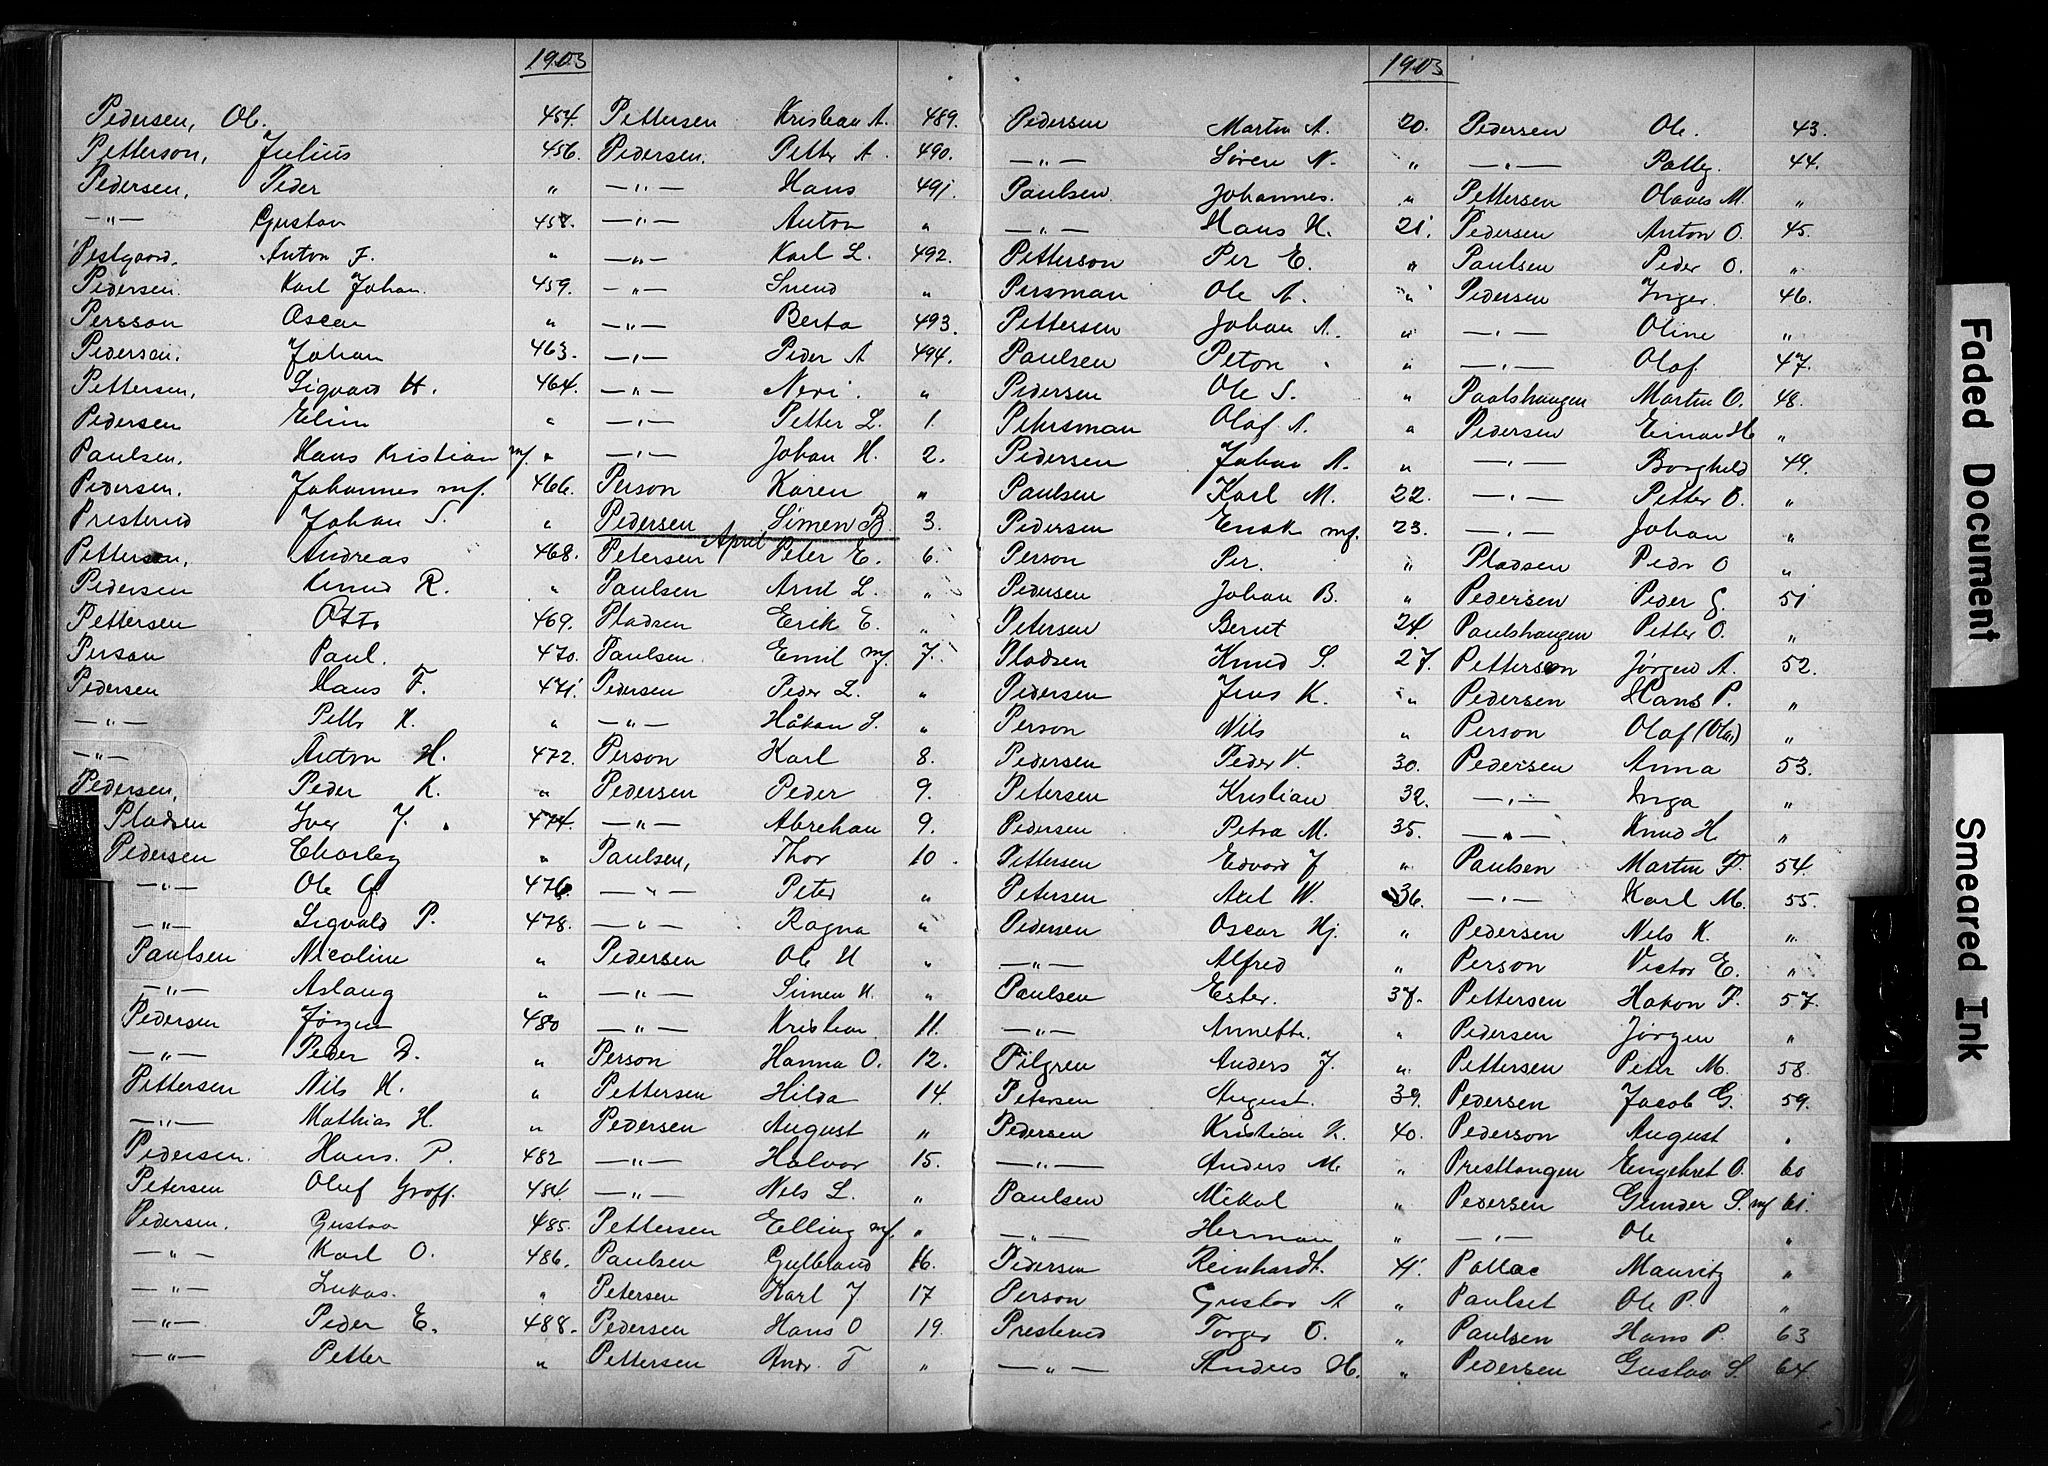 1903
Pedersen, Ole. 454.
Petterson, Julius 456.
Pedersen, Peder "
—"— Gustav 458.
Anton J. "
Pedersen. Karl Johan. 459.
Persson Oscar "
Pedersen. Johan 463.
Pettersen, Sigvard H. 464.
Pedersen "
Paulsen. Hans Kristian mf. "
Pedersen. Johannes mf. 466.
Presterud Johan S. "
Pettersen, Andreas 468.
Pedersen Knud R. "
Pettersen Otto 469.
Person Paul. 470.
Pedersen Hans F. 471.
—"— Petter K. "
—"— Anton H. 472.
Pedersen, Peder K. "
Pladsen Iver J. 474.
Pedersen Charley "
—"— Ole G. 476.
—"— Sigvald P. 478.
Paulsen Nicoline "
—"— Aslaug "
Pedersen Jørgen 480
—"— Peder D. "
Pettersen Nils H. "
—"— Mathias H. "
Pedersen. Hans. P. 482
Petersen Oluf Groff. 484.
Pedersen. Gustav 485.
—"— Karl O. 486.
—"— Lukas. "
—"— Peder E. 488.
—"— Petter "
Pettersen Kristian A. 489.
Pedersen. Petter A. 490.
—"— Hans 491.
—"— Anton "
—"— Karl L. 492.
—"— Svend "
—"— Berta 493.
—"— Peder A 494.
—"— "
—"— Petter L. 1.
—"— Johan H. 2.
Person Karen "
Pedersen Simen B. 3.
April
Petersen Peter E. 6.
Paulsen Arnt L. "
Pladsen Erik E. "
Paulsen. Emil mf. 7.
Pedersen Peder L. "
—"— Håkan S. "
Person Karl 8.
Pedersen Peder 9.
—"— Abrehan 9.
Paulsen, Thor 10.
—"— Peter "
—"— Ragna "
Pedersen Ole H "
—"— Simen K. "
—"— Kristian 11.
Person Hanna O. 12.
Pettersen Hilda 14.
Pedersen August "
—"— Halvor 15.
—"— Nels L. "
Pettersen Elling mf. "
Paulsen Gulbrand 16.
Petersen Karl J 17
Pedersen Hans O 19.
Pettersen Andr. T "
1903
Pedersen Martin A. 20.
—"— Søren N. "
Paulsen. Johannes. "
—"— Hans H. 21.
Petterson Per E. "
Persman Ole A. "
Pettersen Johan A. "
Paulsen Peton "
Pedersen Ole S. "
Pehrsman Olof A. "
Pedersen Johan A. "
Paulsen Karl M. 22.
Pedersen mf. 23.
Person Per. "
Pedersen Johan B. "
Petersen Bernt 24.
Pladsen Knud S. 27.
Pedersen Jens K. "
Person Nils "
Pedersen Peder V. 30.
Petersen Kristian 32.
Pedersen Petra M. 35.
Pettersen Edvard J "
Petersen Axel W. 36.
Pedersen Oscar Hj. "
—"— Alfred "
Paulsen Ester. 37.
—"— Annette. "
Pilgren Anders J. "
Petersen August. 39.
Pedersen Kristian K. 40.
—"— Anders M. "
Paulsen Mikal "
—"— Herman "
Pedersen Reinhardt. 41.
Person Gustav A "
Presterud Torger O. "
—"— Anders H. "
Pedersen Ole. 43.
—"— 44.
Pettersen Olaves M. "
Pedersen Anton O. 45.
Paulsen Peder O. "
Pedersen Inger. 46.
—"— Oline "
—"— Olaf 47.
Paalshaugen Martin O. 48.
Pedersen Einar H "
—"— Borghild 49.
—"— Petter O. "
—"— Johan "
Pladsen Pedr O "
Pedersen Peder G. 51
Paulshaugen Petter O. "
Petterson Jørgen A. 52.
Pedersen Hans P. "
Person Olaf (Olav) "
Pedersen Anna 53.
—"— Inga "
—"— Knud H "
Paulsen Martin P. 54.
—"— Karl M. 55.
Pedersen Nels K. "
Person Victor E. "
Pettersen Hakon P. 57.
Pedersen Jørgen "
Pettersen Peter M. 58.
Pedersen Jacob G. 59.
Pederson August "
Prestlangen Engebret O. 60
Pedersen Gunder S. mf 61.
—"— Ole "
Pollac Mauritz "
Paulset Ole P. "
Paulsen Hans P. 63
Pedersen Gustav S. 64.
Faded Document
Smeared Ink